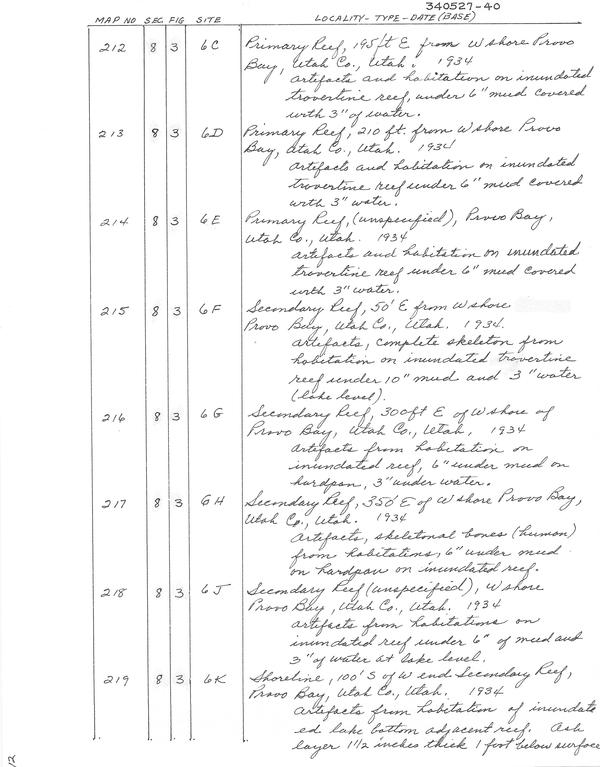 340527-40
MAP NO SEC FIG SITE LOCALITY - TYPE - DATE (BASE)
212 8 3 6C Primary Reef, 195 ft E from W shore Provo
Bay, Utah Co., Utah. 1934
artefacts and habitation on inundated
trovertine reef, under 6" mud covered
with 3" of water.
213 8 3 6D Primary Reef, 210 ft. from W shore Provo
Bay, Utah Co., Utah. 1934
artefacts and habitation on inundated
trovertine reef under 6" mud covered
with 3" water.
214 8 3 6E Primary Reef, (unspecified), Provo Bay,
Utah Co., Utah. 1934
artefacts and habitation on inundated
trovertine reef under 6" mud covered
with 3" water.
215 8 3 6F Secondary Reef, 50' E from W shore
Provo Bay, Utah Co., Utah. 1934.
artefacts, complete skeleton from
habitation on inundated trovertine
reef under 10" mud and 3" water
(lake level).
216 8 3 6G Secondary Reef, 300 ft E of W shore of
Provo Bay, Utah Co., Utah, 1934
artefacts from habitation on
inundated reef, 6" under mud on
hardpan, 3" under water.
217 8 3 6H Secondary Reef, 350' E of W shore Provo Bay,
Utah Co., Utah. 1934
artefacts, skeletonal bones (human)
from habitations, 6" under mud
on hardpan on inundated reef.
218 8 3 6J Secondary Reef (unspecified), W shore
Provo Bay, Utah Co., Utah. 1934
artefacts from habitations on
inundated reef under 6" of mud and
3" of water at lake level.
219 8 3 6K Shoreline, 100' S of W end Secondary Reef,
Provo Bay, Utah Co., Utah. 1934
artefacts from habitation of inundate
ed lake bottom adjacent reef. Ash
layer 1 1/2 inches thick 1 foot below surface
12